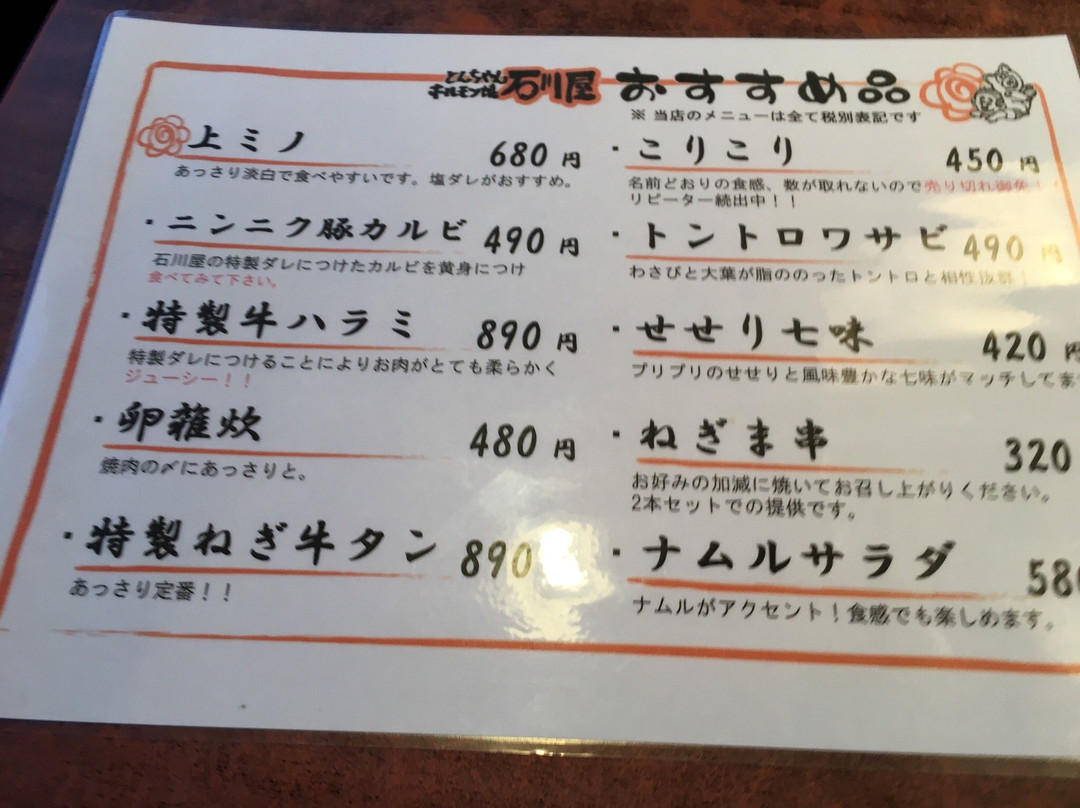 とんちゃん
ホルモン焼 石川屋 おすすめ品
※ 当店のメニューは全て税別表記です
上ミノ 680 円
あっさり淡白で食べやすいです。塩ダレがおすすめ。
・ニンニク豚カルビ 490 円
石川屋の特製ダレにつけたカルビを黄身につけ
食べてみて下さい。
・特製牛ハラミ 890 円
特製ダレにつけることによりお肉がとても柔らかく
ジューシー！！
・卵雑炊 480 円
焼肉の〆にあっさりと。
・特製ねぎ牛タン 890
あっさり定番！！
・こりこり 450 円
名前どおりの食感、数が取れないので売り切れ御免！！
リピーター続出中！！
・トントロワサビ 490 円
わさびと大葉が脂ののったトントロと相性抜群！
・せせり七味 420 円
プリプリのせせりと風味豊かな七味がマッチしてます
・ねぎま串 320
お好みの加減に焼いてお召し上がりください。
2本セットでの提供です。
・ナムルサラダ 580
ナムルがアクセント！食感でも楽しめます。